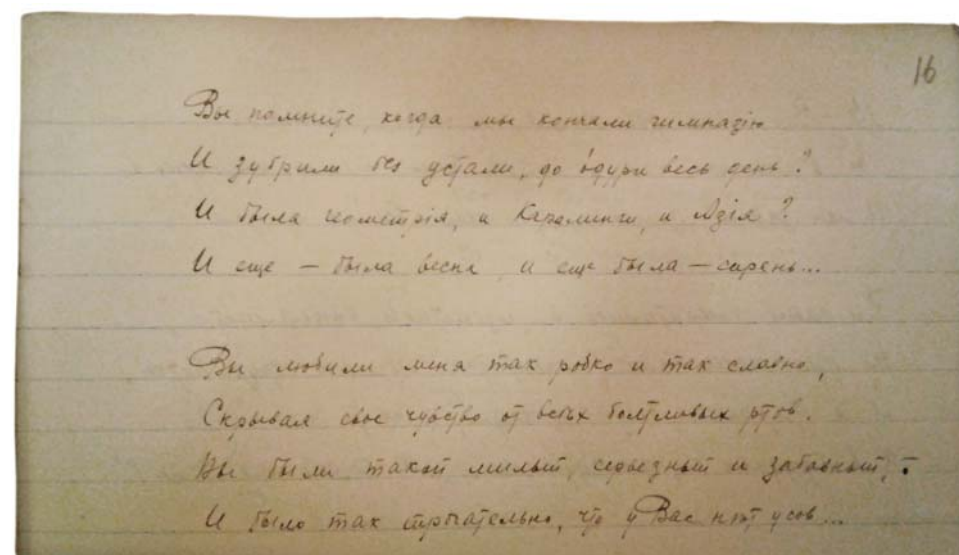 16
Вы помните, когда мы кончали гимназію
И зубрили без устали, до одури весь день?
И была геометрія, и Каролинги, и Азія?
И еще — была весна, и еще была — сирень...
Вы любили меня так робко и так славно,
Скрывая свое чувство от всѣх болтливых ртов.
Вы были такой милый, серьезный и забавный, –
И было так трогательно, что у Вас нѣт усов...